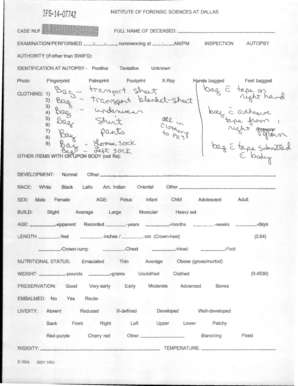 IFS-14-07742
INSTITUTE OF FORENSIC SCIENCES AT DALLAS
CASE NO.# FULL NAME OF DECEASED:
EXAMINATION PERFORMED commencing at AM/PM INSPECTION AUTOPSY
AUTHORITY (if other than SWIFS):
IDENTIFICATION AT AUTOPSY - Positive Tentative Unknown
Photo Fingerprint Palmprint Footprint X-Ray Hands bagged Feet bagged
CLOTHING: 1) Bag - transport sheet
2) Bag - transport blanket-sheet
3) Bag - underwear
4) Bag - Shirt
5) Bag - pants
6)
7)
8) Bag - sock
9) Bag - left sock
bag E tape on
right hand
bag E adhesive
tape from
right
bag E tape submitted
E body
OTHER ITEMS WITH OR UPON BODY (not Rx):
DEVELOPMENT: Normal Other
RACE: White Black Latin Am. Indian Oriental Other
SEX: Male Female AGE: Fetus Infant Child Adolescent Adult
BUILD: Slight Average Large Muscular Heavy set
AGE: -apparent Recorded -years -months -weeks -days
LENGTH -feet -inches / -cm (Crown-heel) (2.54)
-Crown-rump -Chest -Head -Foot
NUTRITIONAL STATUS: Emaciated Thin Average Obese (gross/morbid)
WEIGHT: -pounds -grams Unclothed Clothed (0.4536)
PRESERVATION: Good Very early Early Moderate Advanced Severe
EMBALMED: No Yes Route:
LIVIDITY: Absent Reduced Ill-defined Developed Well-developed
Back Front Right Left Upper Lower Patchy
Red-purple Cherry-red Other Blanching Fixed
RIGIDITY: TEMPERATURE: